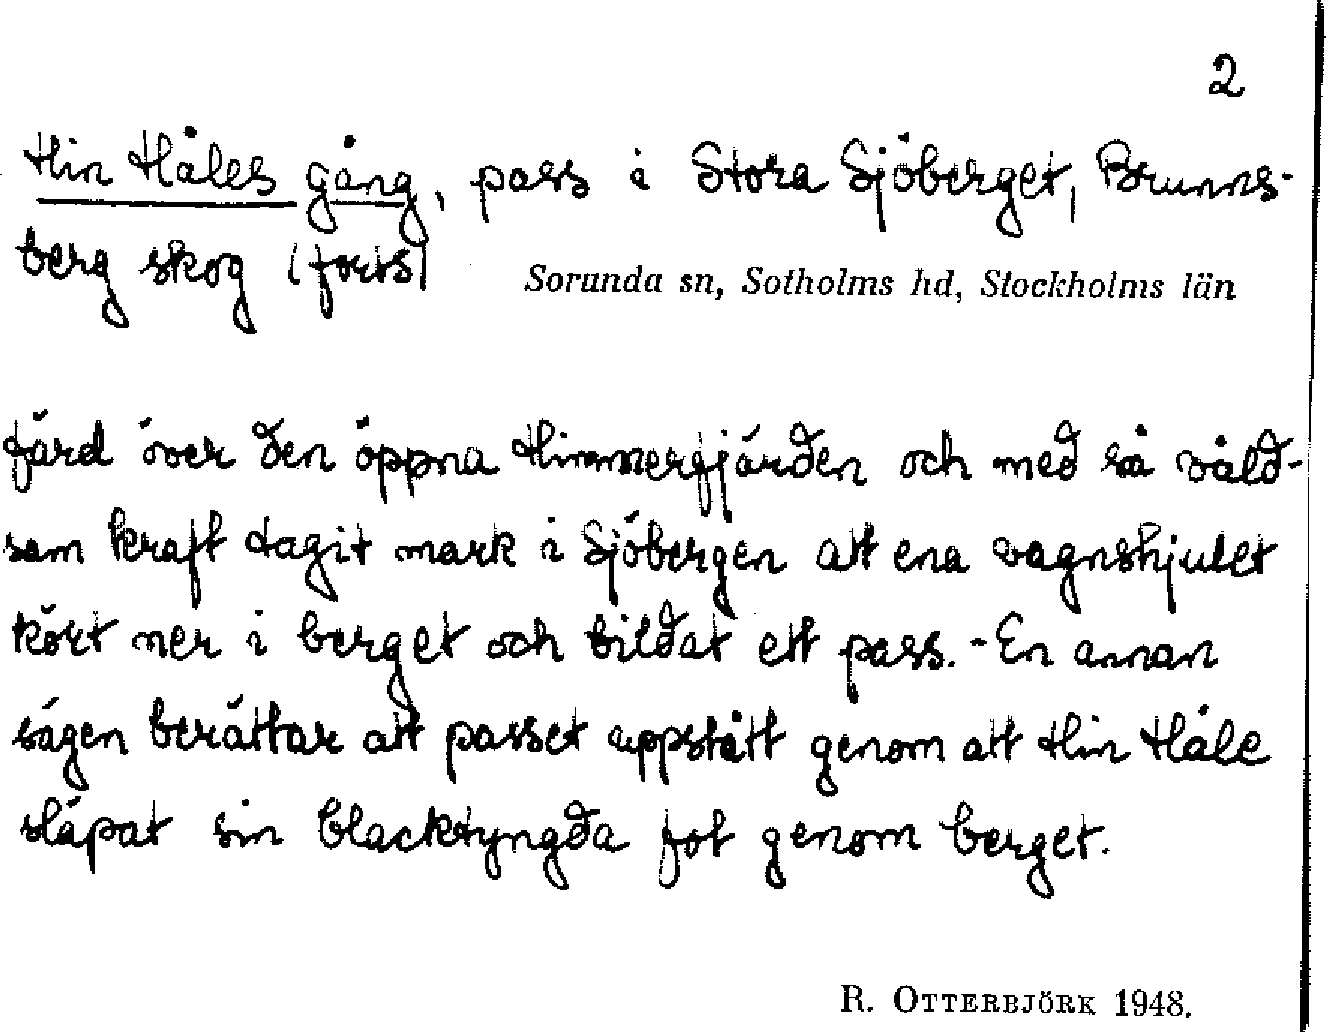 2
Hin Håles gång, pass i Stora Sjöberget, Brunns-
berg skog (forts)
Sorunda sn, Sotholms hd, Stockholms län
färd över den öppna Himmerfjärden och med så våld-
sam kraft tagit mark i Sjöbergen att ena vagnshjulet
kört ner i berget och bildat ett pass. - En annan
sägen berättar att passet uppstått genom att Hin Håle
släpat sin blacktyngda fot genom berget.
R. OTTERBJÖRK 1948.